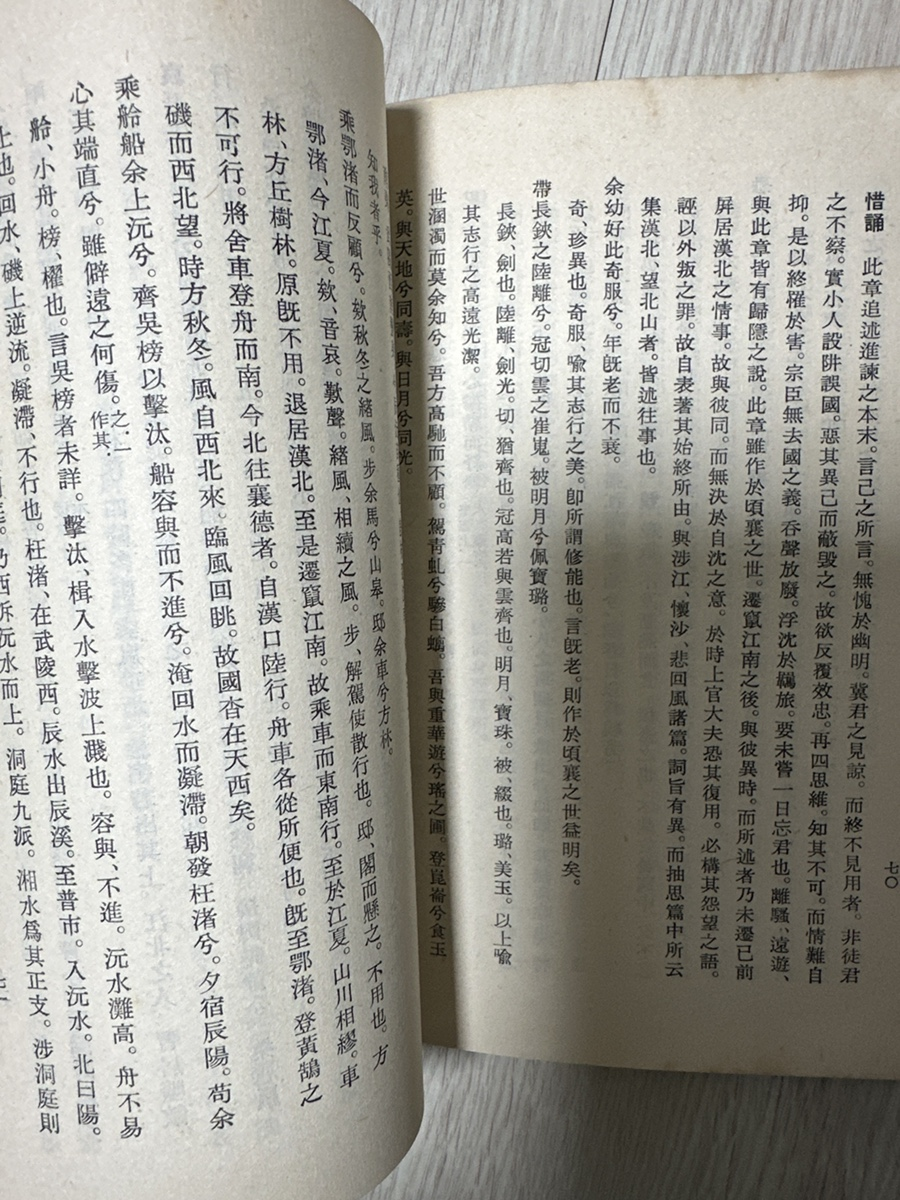 七〇
惜誦　此章追述進諫之本末。言己之所言。無愧於幽明。冀君之見諒。而終不見用者。非徒君
之不察。實小人設阱誤國。惡其異己而蔽毀之。故欲反覆效忠。再四思維。知其不可。而情難自
抑。是以終罹於害。宗臣無去國之義。吞聲放廢。浮沈於羈旅。要未嘗一日忘君也。離騷、遠遊、
與此章皆有歸隱之說。此章雖作於頃襄之世。遷竄江南之後。與彼異時。而所述者乃未遷已前
屏居漢北之情事。故與彼同。而無決於自沈之意。於時上官大夫恐其復用。必構其怨望之語。
誣以外叛之罪。故自表著其始終所由。與涉江、懷沙、悲回風諸篇。詞旨有異。而抽思篇中所云
集漢北、望北山者。皆述往事也。
余幼好此奇服兮。年旣老而不衰。
奇、珍異也。奇服、喩其志行之美。卽所謂修能也。言旣老。則作於頃襄之世益明矣。
帶長鋏之陸離兮。冠切雲之崔嵬。被明月兮佩寶璐。
長鋏、劍也。陸離、劍光。切、猶齊也。冠高若與雲齊也。明月、寶珠。被、綴也。璐、美玉。以上喩
其志行之高遠光潔。
世溷濁而莫余知兮。吾方高馳而不顧。駕青虬兮驂白螭。吾與重華遊兮瑤之圃。登崑崙兮食玉
英。與天地兮同壽。與日月兮同光。
知我者乎。
乘鄂渚而反顧兮。欸秋冬之緒風。步余馬兮山皋。邸余車兮方林。
鄂渚、今江夏。欸、音哀。歎聲。緒風、相續之風。步、解駕使散行也。邸、閣而懸之。不用也。方
林、方丘樹林。原旣不用。退居漢北。至是遷竄江南。故乘車而東南行。至於江夏。山川相繆。車
不可行。將舍車登舟而南。今北往襄德者。自漢口陸行。舟車各從所便也。旣至鄂渚。登黃鵠之
磯而西北望。時方秋冬。風自西北來。臨風回眺。故國杳在天西矣。
乘舲船余上沅兮。齊吳榜以擊汰。船容與而不進兮。淹回水而凝滯。朝發枉渚兮。夕宿辰陽。苟余
心其端直兮。雖僻遠之何傷。之、一作其、
舲、小舟。榜、櫂也。言吳榜者未詳。擊汰、楫入水擊波上濺也。容與、不進。沅水灘高。舟不易
上也。回水、磯上逆流。凝滯、不行也。枉渚、在武陵西。辰水出辰溪。至普市。入沅水。北曰陽。
乃西泝沅水而上。洞庭九派。湘水爲其正支。涉洞庭則
七一